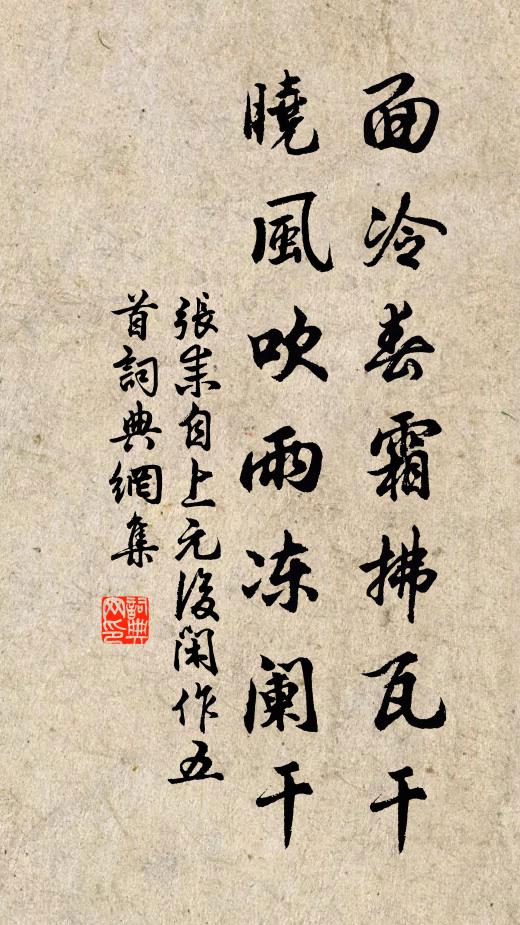 面冷春霜拂瓦干
曉風吹雨冻阑干
張耒自上元後閑作五
首詞典網集
詞典
网印